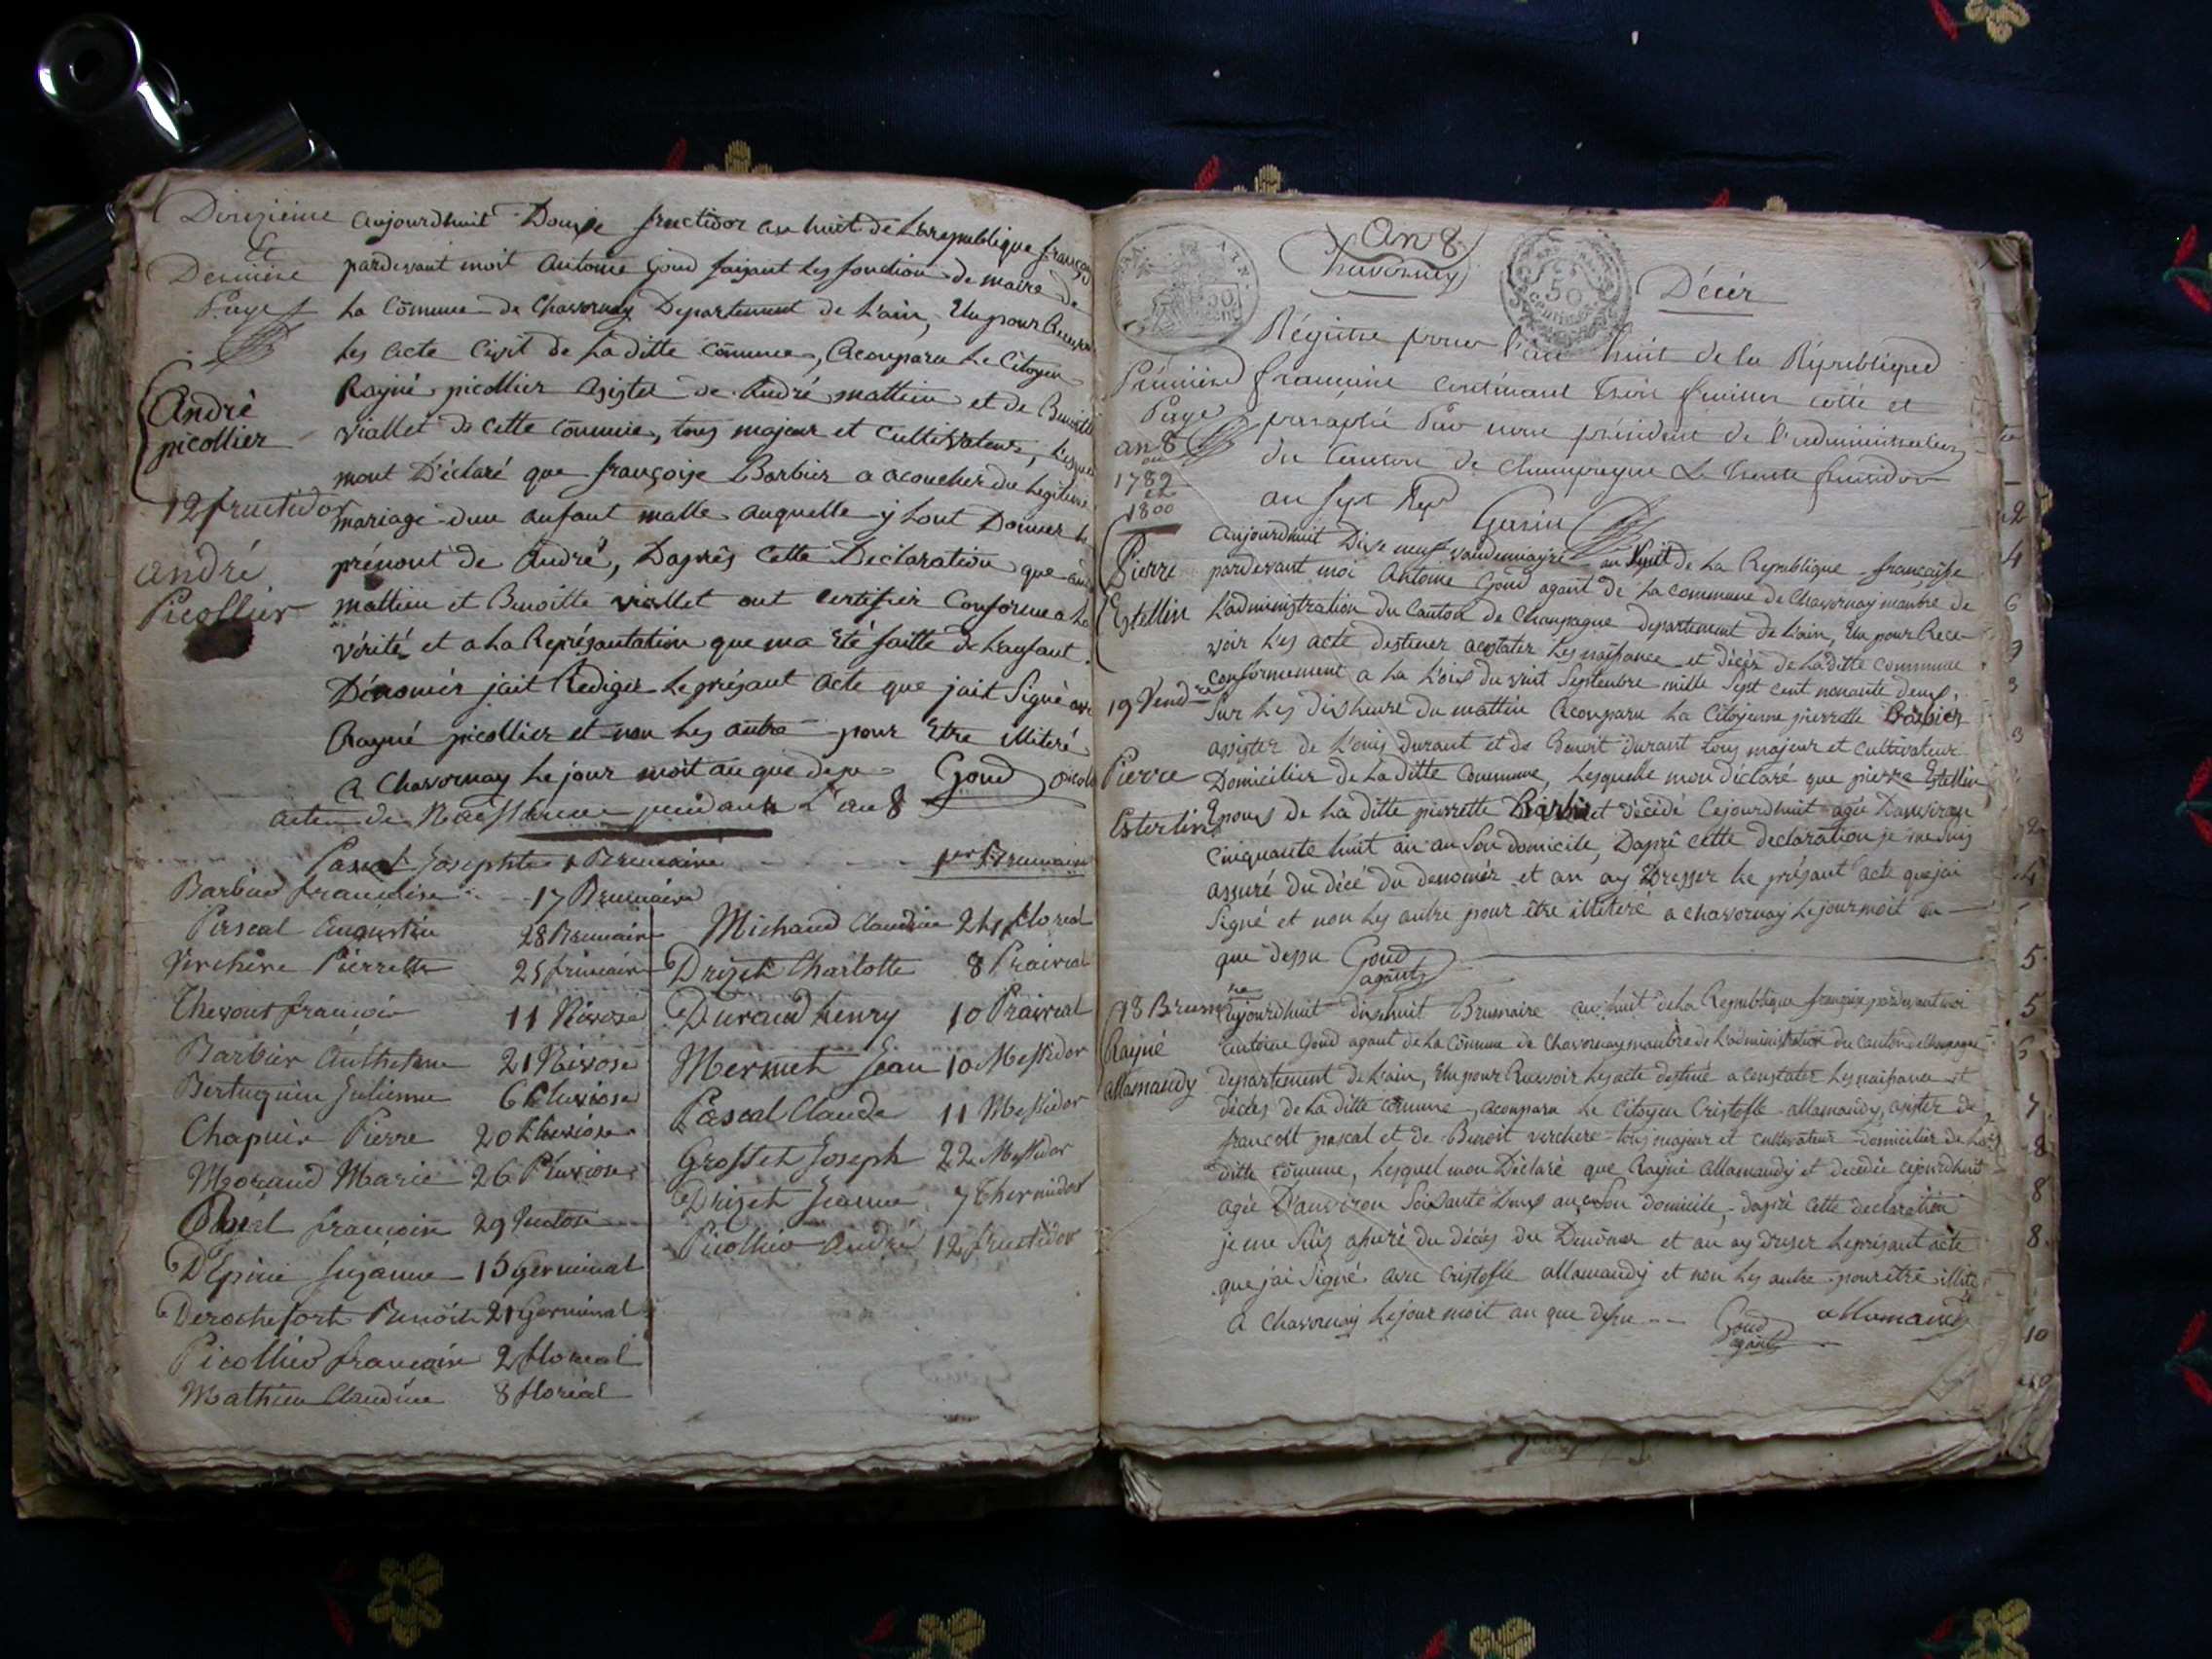 Douzieme
Et
Derniere
Page
André
picollier
12 fructidor
andré
Picollier
aujourdhuit Douze fructidor an huit de Larepublique français
pardevant moit Antoine Goud faisant les fonction de maire de
La Cõmune de Chavornay Departement de L'ain, Elu pour Recevoir
les acte Civit de La ditte cõmune, Acomparu Le Citoyen
Rayné picollier Asistet de André mattieu et de Benoitte
viallet de Cette Cõmmune, tous majeur et Cultivateur, Lesquel
mont D'éclaré que françoise Barbier a acoucher du Legitime
mariage d'un anfant malle auquelle y lont Donner le
prénont de André, Daprês Cette Declaration que andré
mattieu et Benoitte viallet ont certifier Conforme a la
vérité et a La Représantation que ma Eté faitte de Lanfant
Dénomér jait Rediger Le présant acte que jait Signé avec
Rayné picollier et non les autre pour Etre illiteré
A Chavornay Le jour moit an que desu Goud picoll
actes de Naissance pendant L'an 8
Pascal Josephte 1 Brumaire 1er Brumaire
Barbier francoise 17 Brumaire
Pascal Augustin 28 Brumaire
Verchère Pierrette 25 frimaire
Thevout francois 11 Nivose
Barbier Anthelme 21 Nivose
Bertuquin Julienne 6 Pluviose
Chapuis Pierre 20 Pluviose
Morand Marie 26 Pluviose
francoise 29 Ventose
D'Epine Suzanne 15 Germinal
Derochefort Benoit 21 Germinal
Picollier francoise 2 floreal
Mathieu Claudine 8 floreal
Michaud Claudine 24 floreal
Drizet Charlotte 8 Prairial
Durand henry 10 Prairial
Mermet Jean 10 Messidor
Pascal Claude 11 Messidor
Grosset Joseph 22 Messidor
Drizet Jeanne 7 thermidor
Picollier André 12 fructidor
An 8
Chavornay
50
Décès
Régistre pour l'an huit de la République
francaise contenant trois feuilles cotté et
paraphé Par nous président de l'administration
du Canton de Champagne Le trente fructidor
an sept Rep
Garin
Prémière
Page
an 8
ou
1789
et
1800
Pierre
Estellin
19 Vendre
Pierre
Esterlin
aujourdhuit Dixe neuf vandemayre an huit de La Republique française
pardevant moi Antoine Goud agant de La commune de Chavornay manbre de
Ladministration du Canton de Chanpagne departement de Lain, Elu pour Rece-
voir Les acte destiner acostater Les naissance et décés de La ditte commune
conformement a La Lois du vint Septenbre mille Sept cent nonante deux,
Sur Les dix heure du mattin Acomparu La Citoyenne pierrette Barbier
assister de Louis durant et de Benoit durant tous majeur et cultivateur
Domicilier de La ditte Commune, Lesquelle mon déclaré que pierre Estellin
Epoux de La ditte pierrette Barbier et décédé cejourdhuit agée danviron
cinquante huit an au Son domicile, Daprê cette declaration je me suis
assuré du décé du denomér et an ay Dresser Le présant acte que jai
Signé et non Les autre pour être illiteré a chavornay Le jour moit an
que dessu Goud
agant
18 Brumre
Rayné
allamandy
Aujourdhuit dix huit Brumaire an huit de La Republique française pardevant moi
Antoine Goud agant de La Cõmune de Chavornay manbre de L'administration du Canton de Chanpagne
departement de Lain, Elu pour Recevoir Les acte destiné a constater Les naissance et
décés de La ditte cõmune, acomparu Le Citoyen Cristofle allamandy, asister de
francoit pascal et de Benoit verchere tous majeur et cultivateur domicilier de La
ditte cõmune, Lesquel mon Déclaré que Rayné allamandy et decedée cejourdhuit
agée D'anviron Soisante deux an a Son domicile, daprè cette declaration
je me Suis asuré du décés du Denõmer et an ay dreser Leprésant acte
que jai Signé avec Cristofle allamandy et non Les autre pour être illite
A Chavornay Le jour moit an que desu
Goud
agant
allamandy